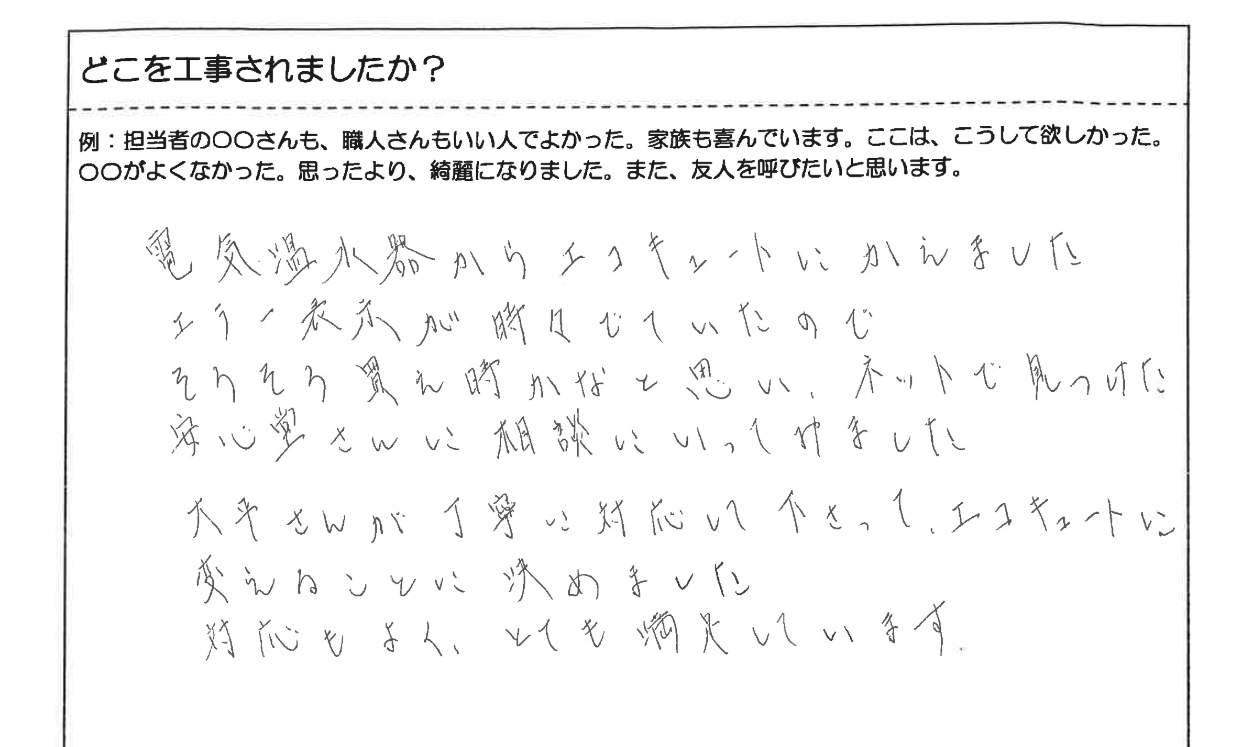 どこを工事されましたか？
例：担当者の〇〇さんも、職人さんもいい人でよかった。家族も喜んでいます。ここは、こうして欲しかった。
〇〇がよくなかった。思ったより、綺麗になりました。また、友人を呼びたいと思います。
電気温水器からエコキュートにかえました
エラー表示が時々でていたので
そろそろ買え時かなと思い、ネットで見つけた
安心堂さんに相談にいってみました
大平さんが丁寧に対応して下さって、エコキュートに
変えることに決めました
対応もよく、とても満足しています。